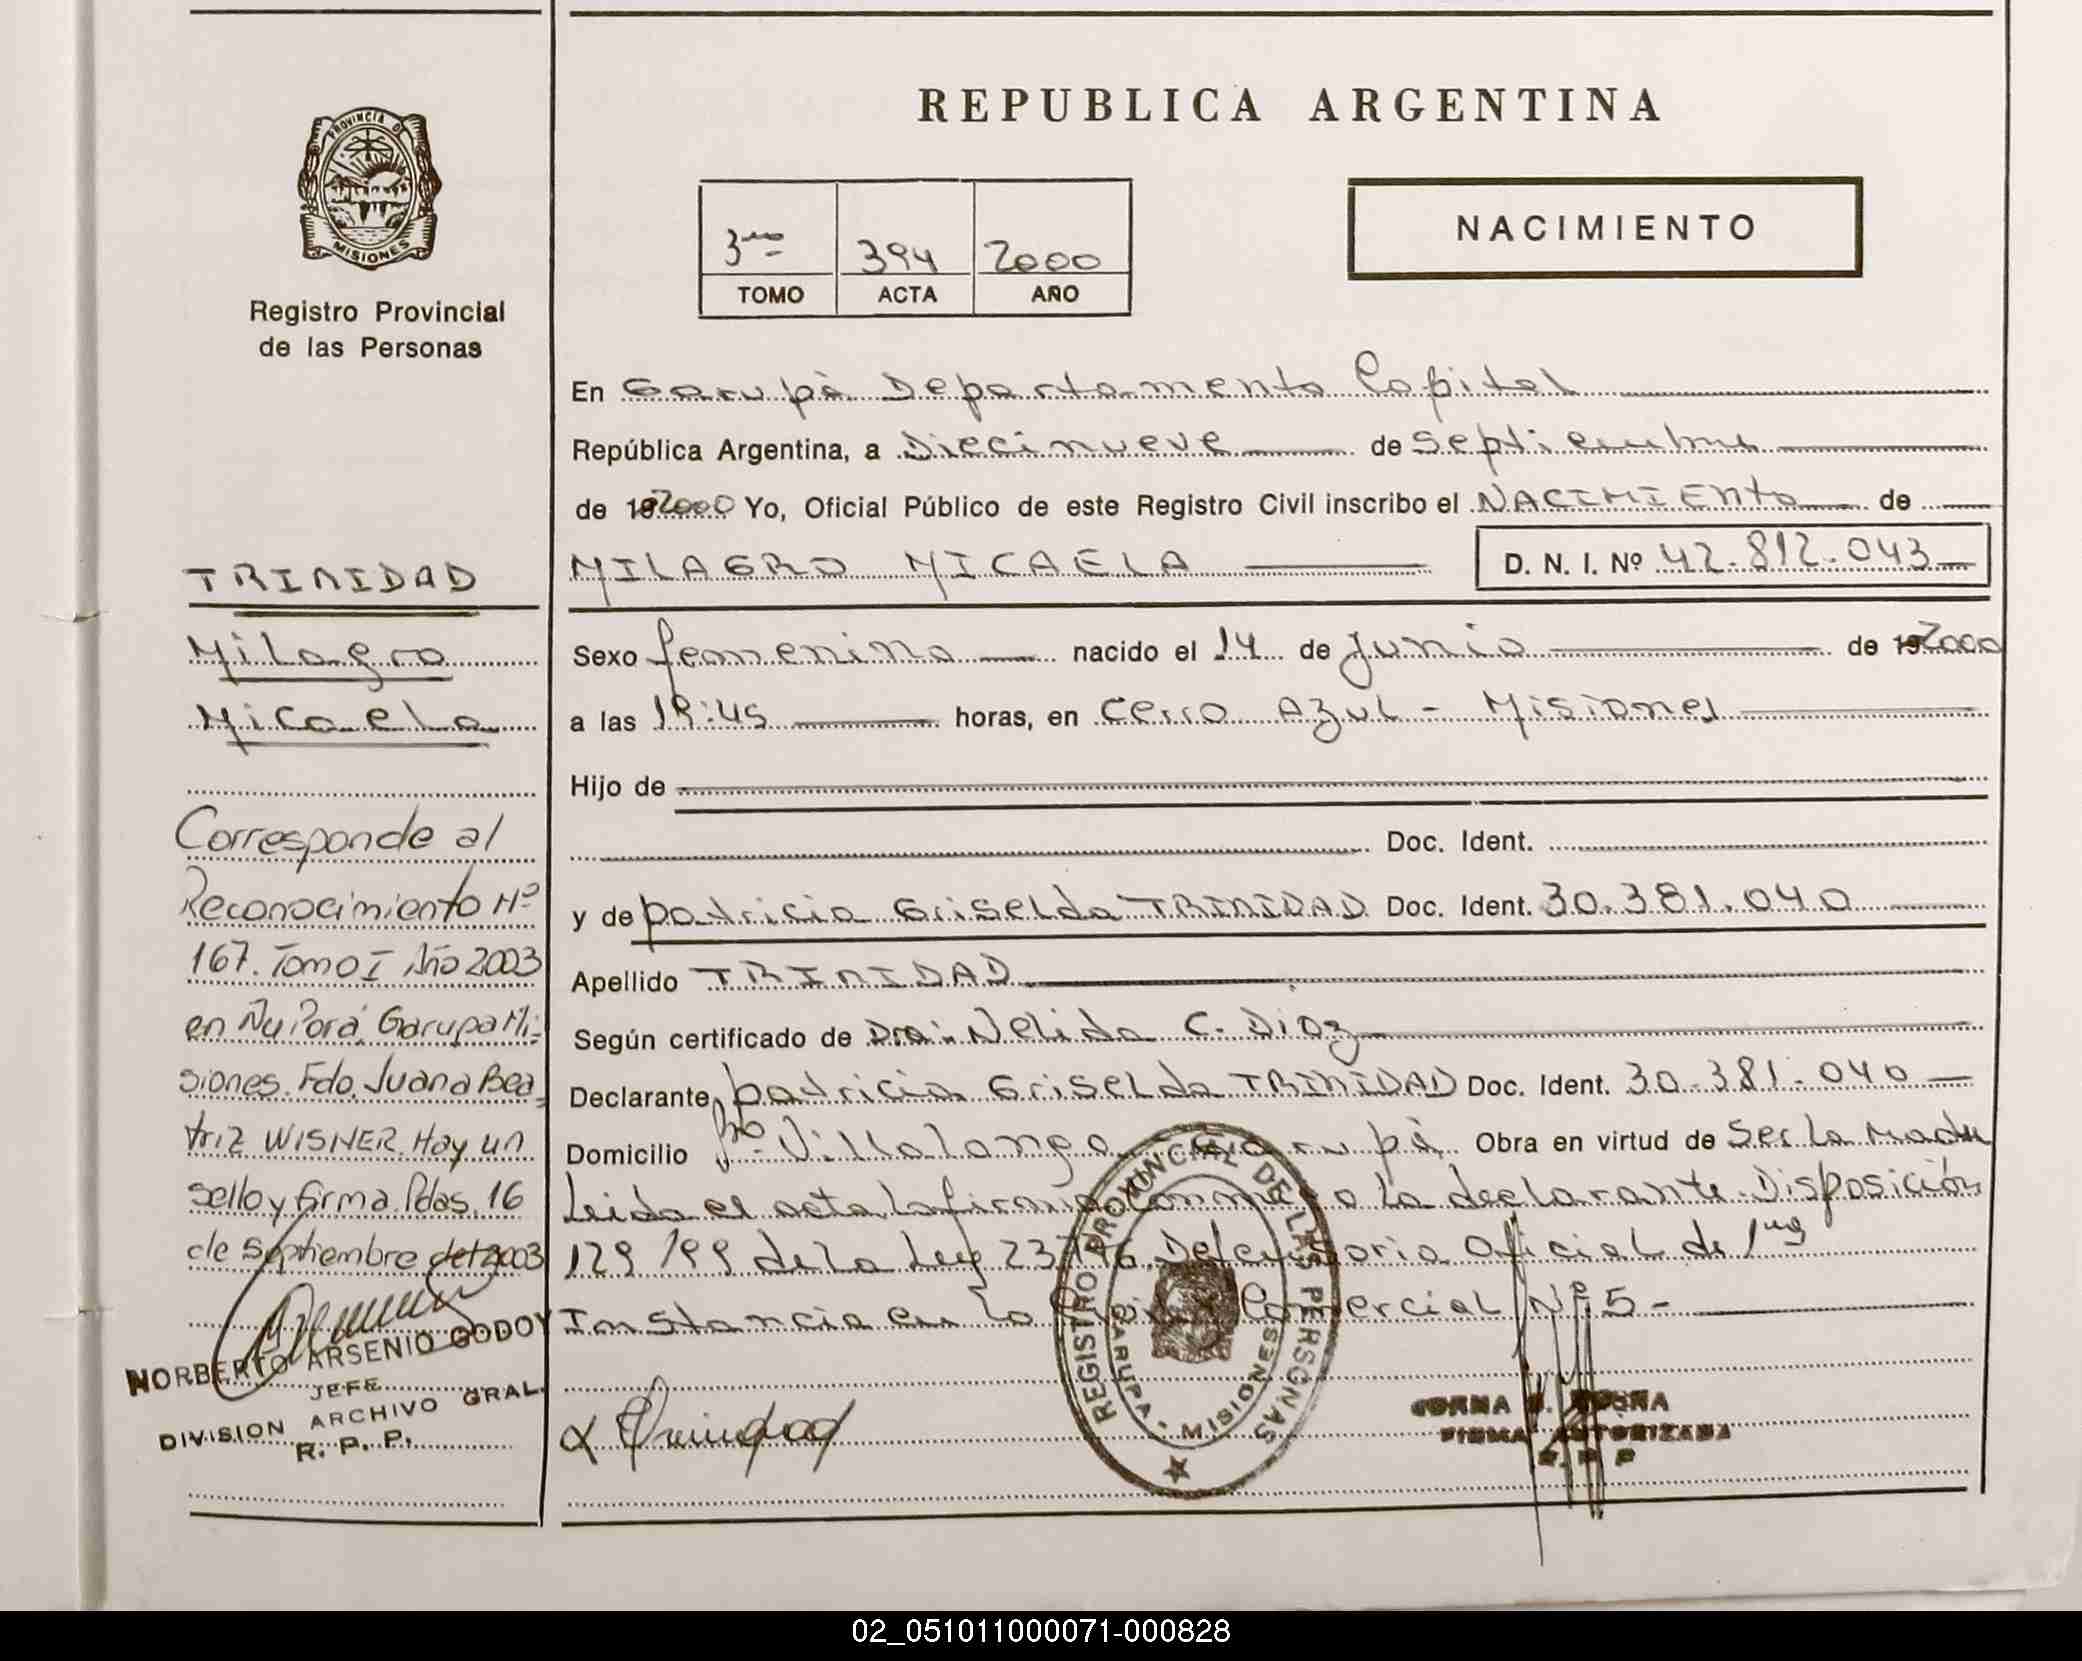 REPUBLICA ARGENTINA
PROVINCIA D
MISIONES
Registro Provincial
de las Personas
3ro 394 2000
TOMO ACTA AÑO
NACIMIENTO
En Garupá Departamento Capital
República Argentina, a Diecinueve de septiembre
de 192000 Yo, Oficial Público de este Registro Civil inscribo el NACIMIENto de
MILAGRO MICAELA D. N. I. Nº 42.812.043
Sexo femenino nacido el 14 de Junio de 192000
a las 19:45 horas, en Cerro Azul - Misiones
Hijo de
Doc. Ident.
y de patricia Griselda TRINIDAD Doc. Ident. 30.381.040
Apellido TRINIDAD
Según certificado de Dra: Nelida C. Diaz
Declarante patricia Griselda TRINIDAD Doc. Ident. 30.381.040
Domicilio Bº Villalonga Garupá Obra en virtud de ser la madre
Leida el acta, la firma conmigo la declarante. Disposición
129/99 de la Ley 23776 Defensoria Oficial de 1ra
Instancia en lo Civil y Comercial Nº 5 -
Trinidad
REGISTRO PROVINCIAL DE LAS PERSONAS
GARUPA - MISIONES
FIRMA AUTORIZADA
R. P. P
TRINIDAD
Milagro
Micaela
Corresponde al
Reconocimiento Nº
167. Tomo I Año 2003
en Ñu Porá, Garupa Mi-
siones. Fdo. Juana Bea-
triz WISNER. Hay un
sello y firma. Pdas. 16
de Septiembre del 2003
NORBERTO ARSENIO GODOY
JEFE
DIVISION ARCHIVO GRAL.
R. P. P.
02_051011000071-000828